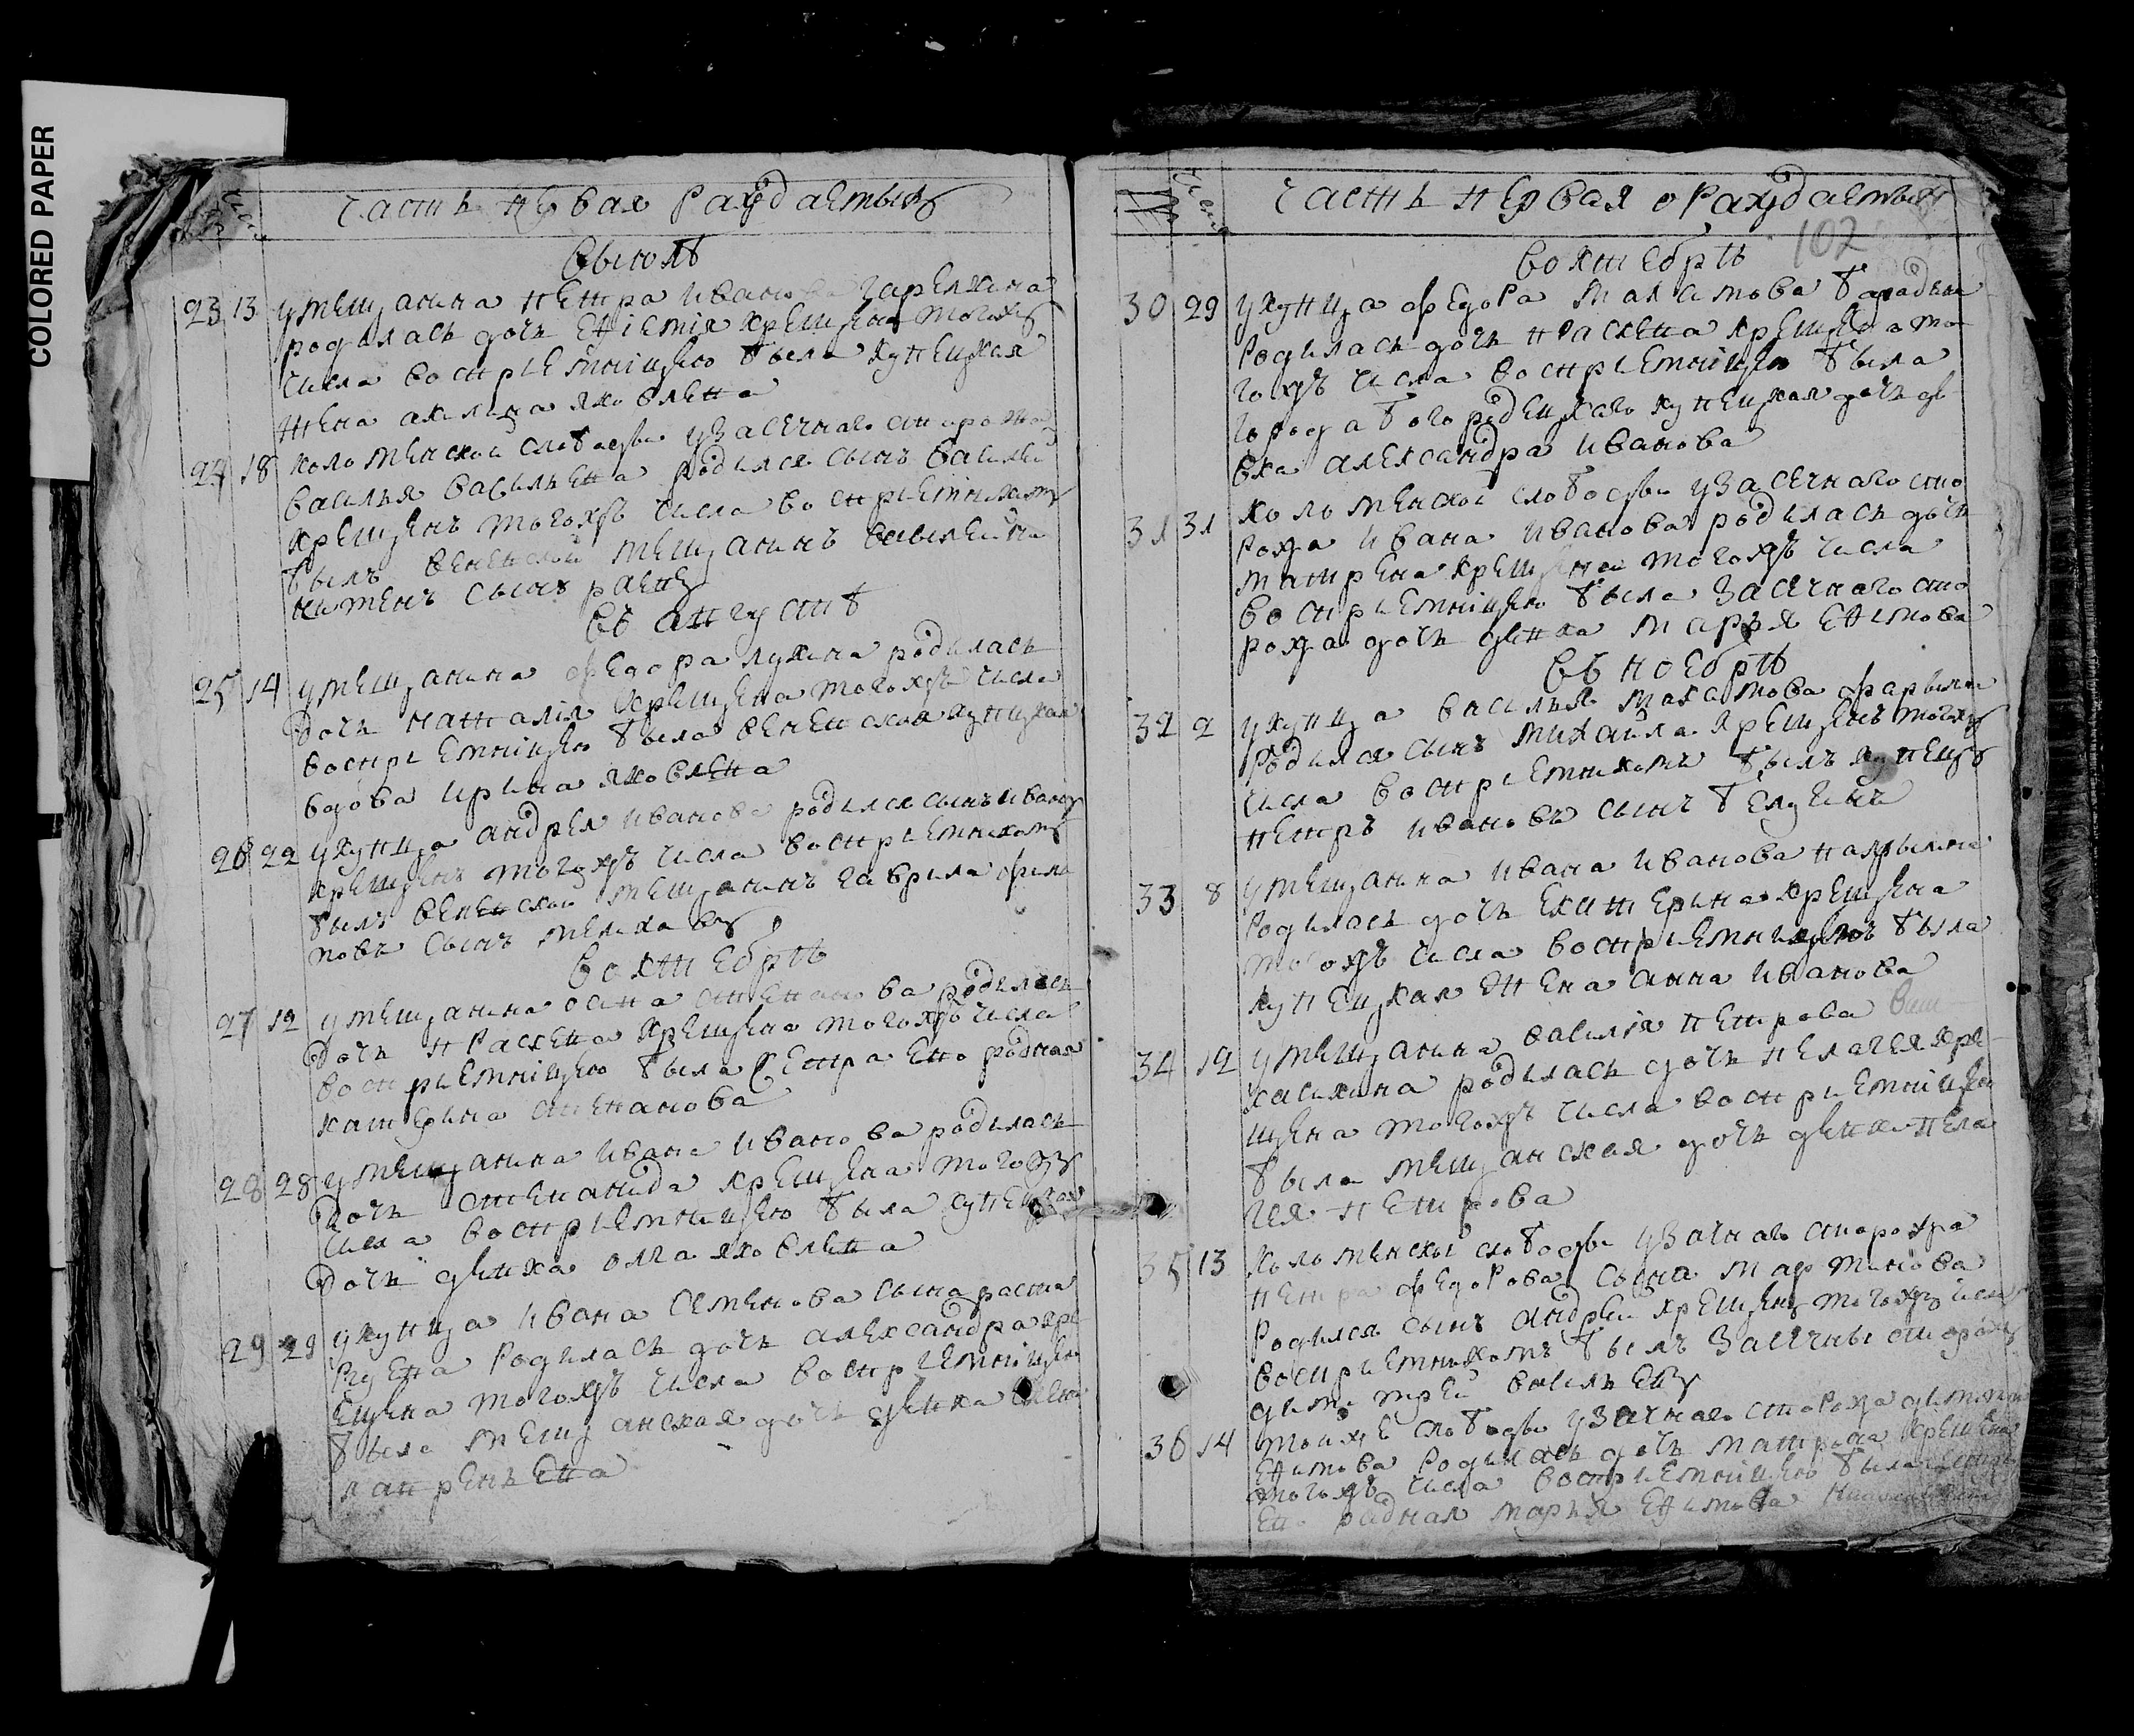 COLORED PAPER
часть первая раждаемыхъ
виюлѣ
23 13 умещанина петра иванова
родилась дочь крещена тогожъ
числа восприемницею была купецкая
жена акилина яковлева
24 18 коломенской слободы узасечнаго сторожа
василья васильева родился сынъ василей
крещенъ тогожъ числа восприемникомъ
былъ веневской мещанинъ
сынъ
въ августѣ
25 14 умещанина федора лукина родилась
дочь наталия крещена тогожъ числа
восприемницею была веневская купецкая
вдова ирина яковлева
26 22 укупца андрея иванова родился сынъ иванъ
крещенъ тогожъ числа восприемникомъ
былъ веневской мещанинъ гаврила фили
повъ сынъ
вохтебрѣ
27 12 умещанина осипа степанова родилась
дочь прасковя крещена тогожъ числа
восприемницею была сестра ево родная
катерина степанова
28 28 умещанина ивана иванова родилась
дочь степанида крещена тогожъ
числа восприемницею была купецкая
дочь девка олга яковлева
29 29 укупца ивана семенова сына расто
ргуева родилась дочь александра кре
щена тогожъ числа восприемницею
была мещанская дочь девка
лаврентьева
часть первая о раждаемыхъ
102
вохтебрѣ
30 29 укупца федора максимова бародина
родилась дочь прасковя крещена то
гожъ числа восприемницею была
города богородецкаго купецкая дочь де
вка александра иванова
31 31 коломенской слободы узасечнаго сто
рожа ивана иванова родилась дочь
матрена крещена тогожъ числа
восприемницею была засечнаго сто
рожа дочь девка марья ефимова
въ ноебрѣ
32 2 укупца василья максимова
родился сынъ михаила крещенъ тогожъ
числа восприемникомъ былъ купецъ
петръ ивановъ сынъ белугинъ
33 8 умещанина ивана иванова
родилась дочь екатерина крещена
тогожъ числа восприемницею была
купецкая жена анна иванова
34 12 умещанина василия петрова
родилась дочь пелагея кре
щена тогожъ числа восприемницею
была мещанская дочь девка пела
гея петрова
35 13 коломенской слободы узасечнаго сторожа
петра федорова сына мартинова
родился сынъ андрей крещенъ тогожъ числа
восприемникомъ былъ засечны сторожъ
димитрей васильевъ
36 14 тоижъ слободы узасечнаго сторожа
ефимова родилась дочь матрена крещена
тогожъ числа восприемницею была сестра
ево родная марья ефимова